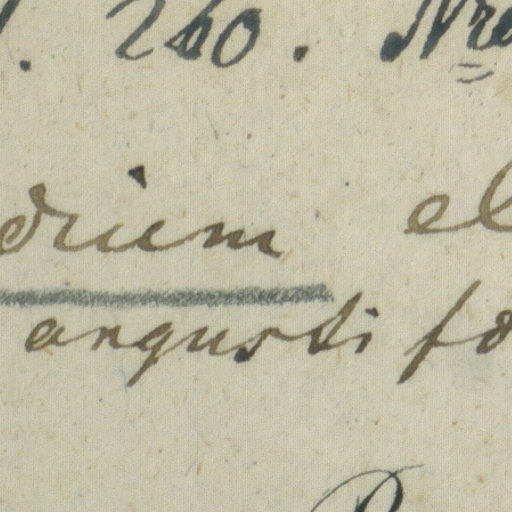 . 260. Nro
dium el
angusti fo